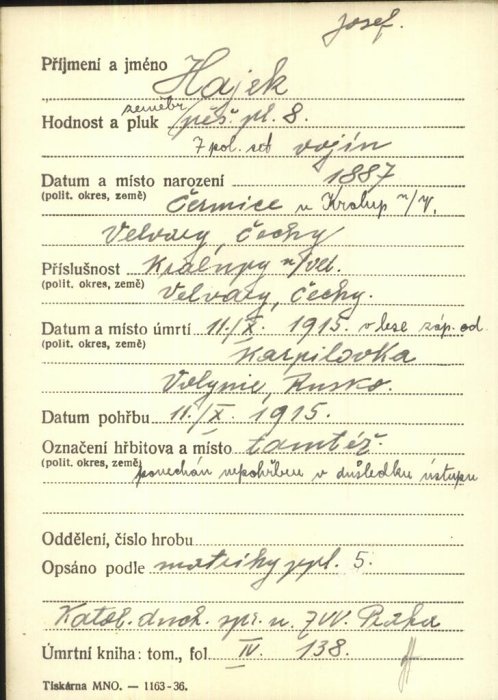 Josef.
Příjmení a jméno Hajek
Hodnost a pluk zeměbr. pěš. pl. 8.
7 pol. set vojín
Datum a místo narození 1887
(polit. okres, země) Čermice u Kralup n/V.
Velvary, Čechy
Příslušnost Kralupy n/Vel.
(polit. okres, země) Velvary, Čechy.
Datum a místo úmrtí 11./X. 1915. v lese záp. od
(polit. okres, země) Karpilovka
Volynie, Rusko.
Datum pohřbu 11./X. 1915.
Označení hřbitova a místo tamtéž.
(polit. okres, země) ponechán nepohřben v důsledku ústupu
Oddělení, číslo hrobu
Opsáno podle matriky ppl. 5.
Katol. duch. spr. u ZVV. Praha
Úmrtní kniha: tom., fol. IV. 138.
Tiskárna MNO. — 1163-36.